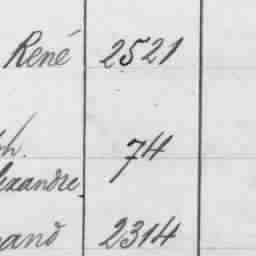 René 2521
ph. 74
lexandre
2314